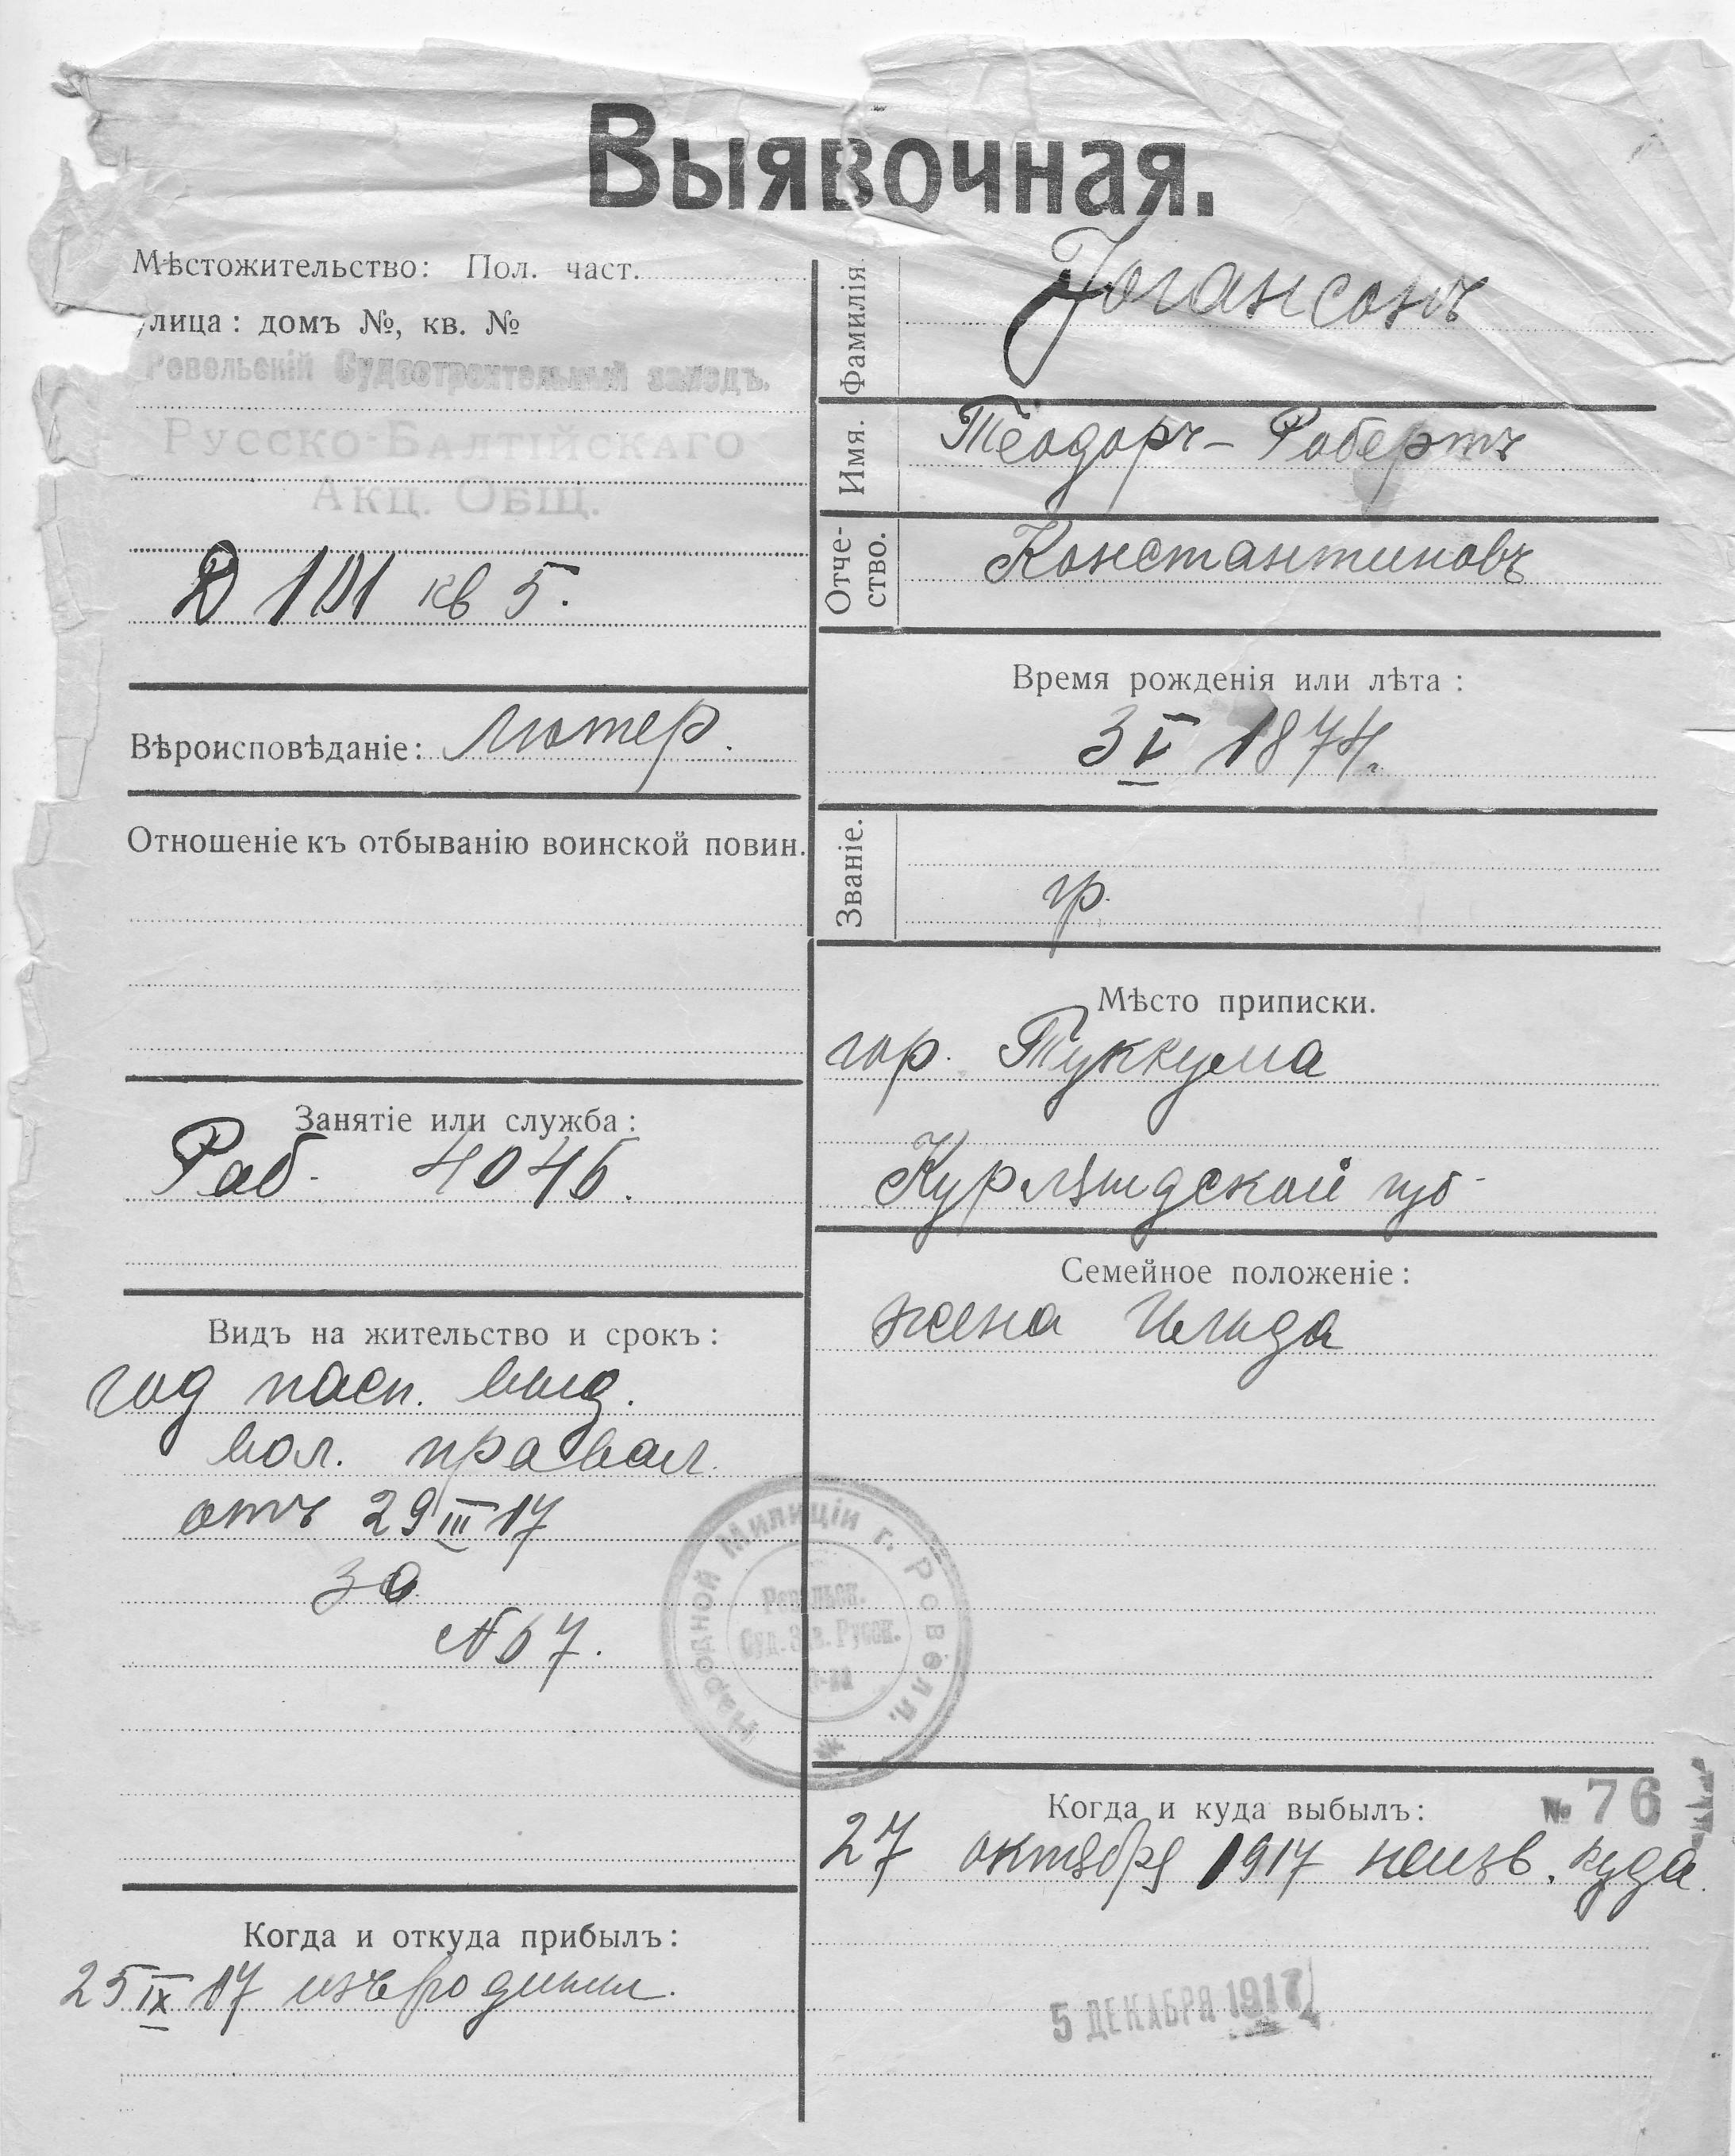 Выявочная.
Мѣстожительство: Пол. част.
лица: домъ №, кв. №
Ревельскій Судостроительный заводъ.
Русско-Балтійскаго
Акц. Общ.
Д 101 кв 5.
Вѣроисповѣданіе: лютер.
Отношеніе къ отбыванію воинской повин.
Занятіе или служба:
Раб. 4046.
Видъ на жительство и срокъ:
год пасп. выд.
вол. правл.
отъ 29 III 17
за
№ 67.
Когда и откуда прибылъ:
25 IX 17 изъ родины.
Фамилія.
Іогансонъ
Имя.
Теодоръ-Робертъ
Отче-
ство.
Константиновъ
Время рожденія или лѣта:
3 V 1874.
Званіе.
гр.
Мѣсто приписки.
гор. Туккума
Курляндской губ-
Семейное положеніе:
жена
Народной Милиціи г. Ревеля.
Ревельск.
Суд. Зав. Русск.
№ 76
Когда и куда выбылъ:
27 октября 1917 неизв. куда.
5 ДЕКАБРЯ 1917